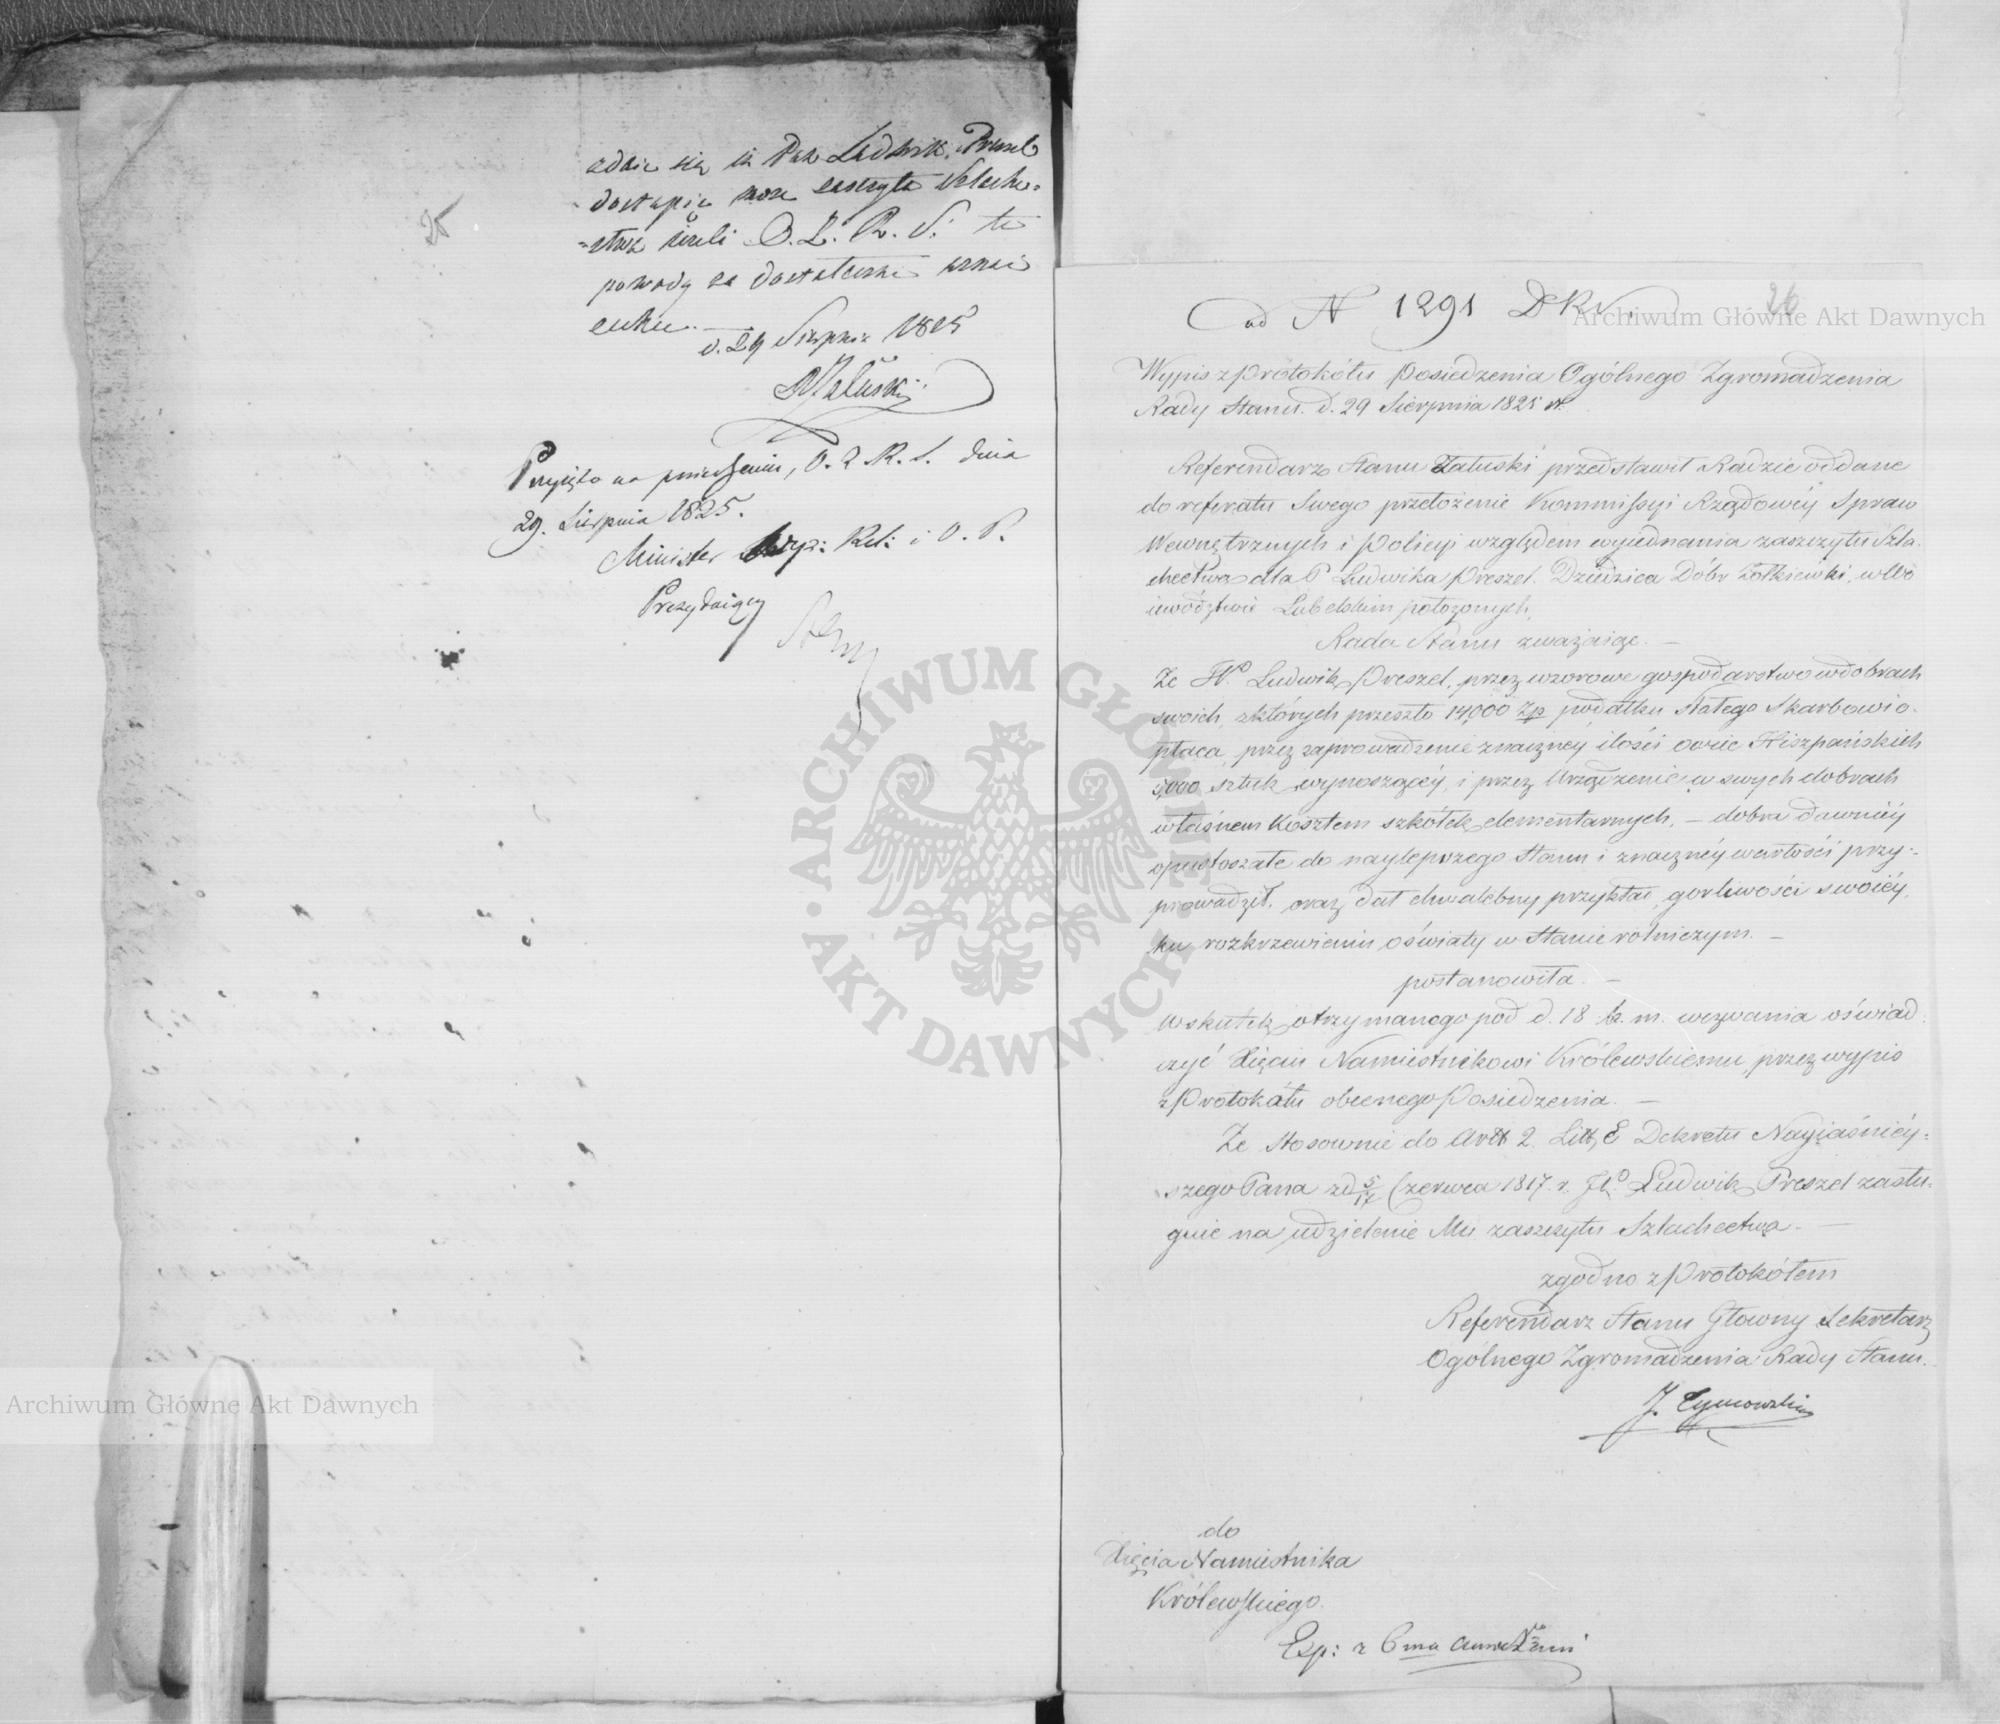 25
zdaie się iż Pan Ludwik Preszel
dostąpić może zaszczytu Szlache-
-ctwa ieżeli O. Z. R. S. te
powody za dostateczne uznać
d. 29 Sierpnia 1825
Załuski
Przyięto na posiedzeniu, O. Z. R. S. dnia
29. Sierpnia 1825.
Minister Wyz: Rel: i O. P.
Prezyduiący
26
ad N 1291 DKN.
Wypis z Protokółu Posiedzenia Ogólnego Zgromadzenia
Rady Stanu. d. 29 Sierpnia 1825 r.
Referendarz Stanu Załuski przedstawił Radzie oddane
do referatu Swego przełożenie Kommissyi Rządowéy Spraw
Wewnętrznych i Policyi względem wyiednania zaszczytu Szla-
chectwa dla P Ludwika Preszel. Dziedzica Dóbr Żółkiewki, w Wo
iewództwie Lubelskim położonych,
Rada Stanu zważaiąc. —
Że JP. Ludwik Preszel, przez wzorowe gospodarstwo w dobrach
swoich, z których przeszło 14,000 Zp podatku stałego Skarbowi o-
płaca, przez zaprowadzenie znaczney ilości owiec Hiszpańskich
5,000 sztuk wynoszącéy, i przez Urządzenie w swych dobrach
własnem Kosztem szkółek elementarnych, — dobra dawniéy
opustoszałe do naylepszego Stanu i znacznéy wartości przy-
prowadził. oraz dał chwalebny przykład gorliwości swoiéy,
ku rozkrzewieniu oświaty w Stanie rolniczym. —
postanowiła. —
W skutek otrzymanego pod d. 18 b. m. wezwania oświad-
czyć Xięciu Namiestnikowi Królewskiemu, przez wypis
z Protokółu obecnego Posiedzenia. —
Że Stosownie do Artt 2. Litt, E Dekretu Nayiaśniéy-
szego Pana z d 5/17 Czerwca 1817. r. JP. Ludwik Preszel zasłu-
guie na udzielenie Mu zaszczytu Szlachectwa. —
zgodno z Protokółem
Referendarz Stanu Głowny Sekretarz
Ogólnego Zgromadzenia Rady Stanu.
J. Tymowski
do
Xięcia Namiestnika
Królewskiego.
Exp: z
Archiwum Główne Akt Dawnych
Archiwum Główne Akt Dawnych
ARCHIWUM GŁÓWNE • AKT DAWNYCH •